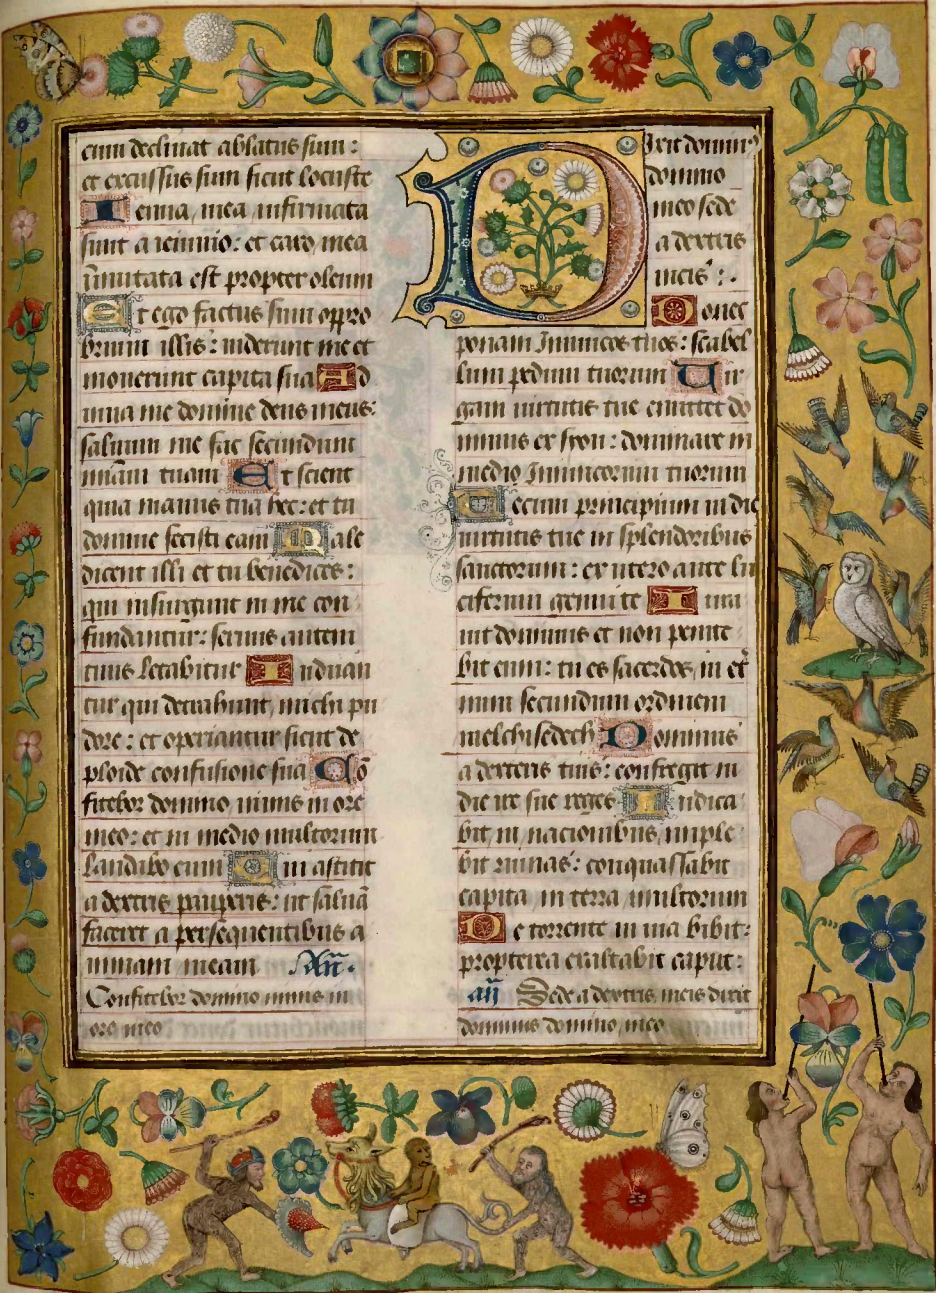 cum declinat ablatus sum :
et excussus sum sicut locuste
Genua, mea, infirmata
sunt a ieiunio: et caro mea
īmutata est propter oleum
Et ego factus sum oppro
brium illis: viderunt me et
moverunt capita sua Ad
iuua me domine deus meus:
salvum me fac secundum
mīam tuam Et scient
quia manus tua hec: et tu
domine fecisti eam Male
dicent illi et tu benedices:
qui insurgunt in me con
fundantur: servus autem
tuus letabitur Induan
tur qui detrahunt, michi pu
dore: et operiantur sicut de
ploide confusione sua Cō
fitebor domino nimis in ore
meo: et in medio multorum
laudabo eum Qui astitit
a dextris pauperis: ut salvā
faceret a persequentibus a
nimam meam. An̄.
Confitebor domino nimis in
ore meo
Dixit domin9
domino
meo sede
a dextris
meis :.
Donec
ponam Inimicos tuos: scabel
lum pedum tuorum Uir
gam virtutis tue emittet do
minus ex syon: dominare in
medio Inimicorum tuorum
Tecum principium in die
virtutis tue in splendoribus
sanctorum: ex utero ante lu
ciferum genui te Iura
vit dominus et non penite
bit eum: tu es sacerdos, in et̄
num secundum ordinem
melchisedech Dominus
a dextris tuis: confregit in
die ire sue reges Iudica
bit, in nacionibus, imple
bit ruinas: conquassabit
capita, in terra, multorum
De torrente in via bibit:
propterea exaltabit caput:
an̄ Sede a dextris meis dixit
dominus domino, meo